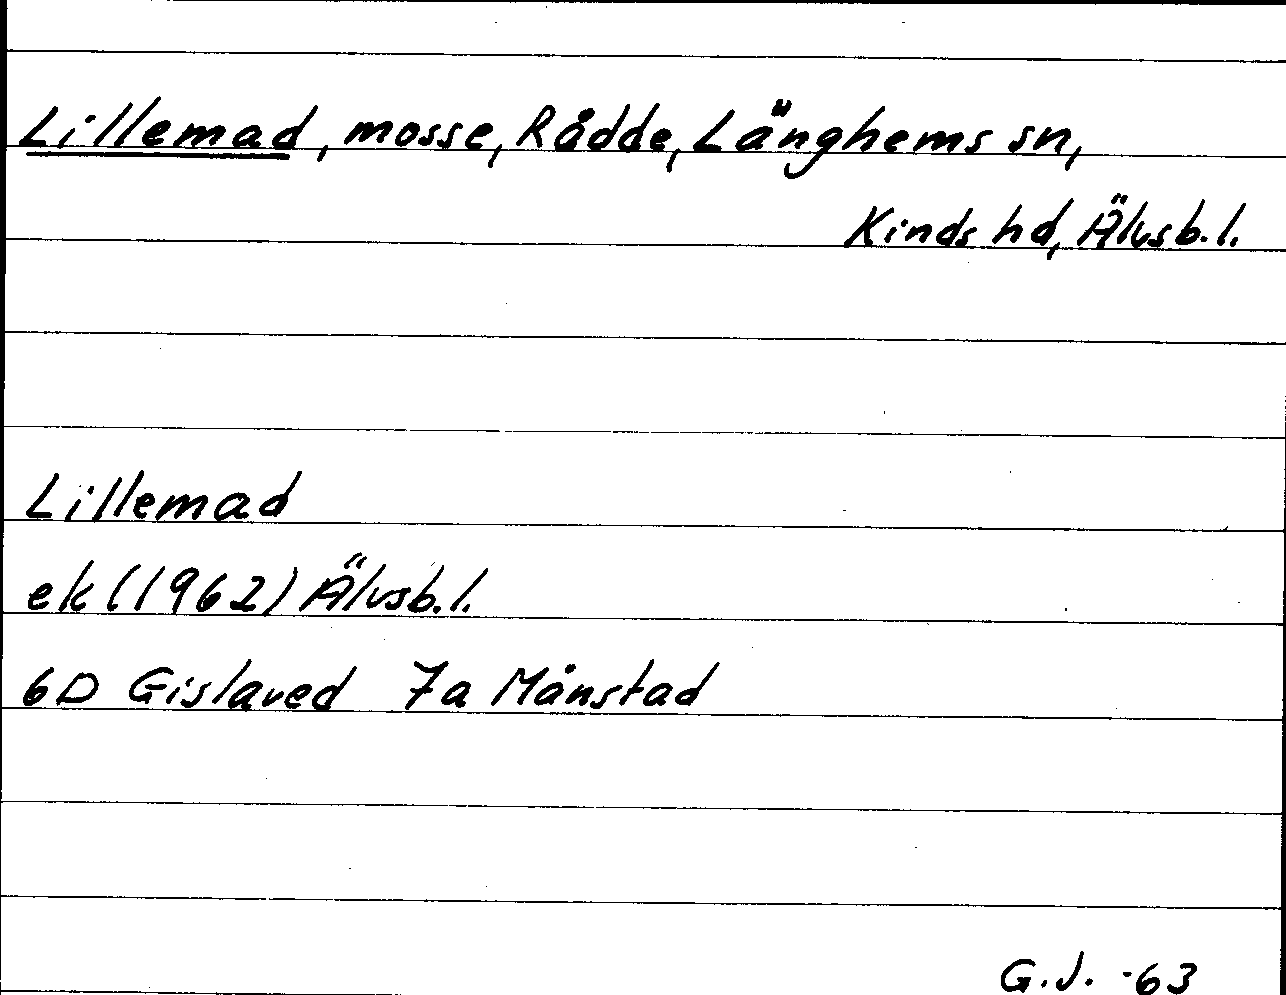 Lillemad, mosse, Rådde, Länghems sn,
Kinds hd, Älvsb.l.
Lillemad
ek (1962) Älvsb.l.
6D Gislaved 7a Månstad
G.J. -63